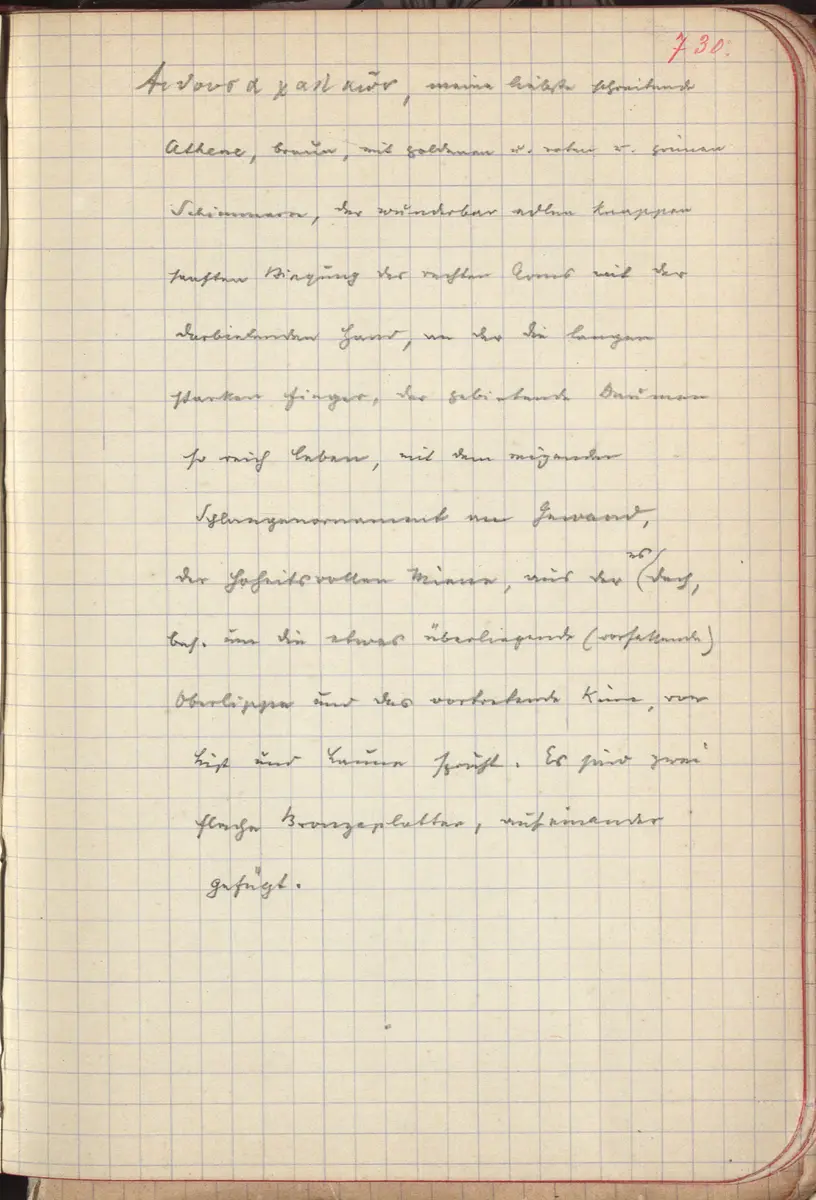 730.
Αίθουσα χαλκών, meine liebste schreitende
Athene, braun, mit goldenen u. roten u. grünen
Schimmern, der wunderbar edlen knappen
sanften Biegung des rechten Arms mit der
darbietenden Hand, an der die langen
starken Finger, der gebietende Daumen
so reich leben, mit dem reizenden
Schlangenornament am Gewand,
der hoheitsvollen Miene, aus der es (doch,
bes. um die etwas überliegende (vorfallende)
Oberlippe und das vortretende Kinn, von
List und Laune sprüht. Es sind zwei
flache Bronzeplatten, aufeinander
gefügt.